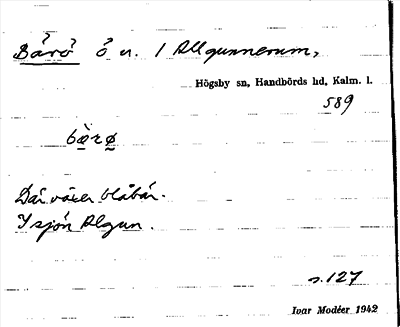 Bårö ö n. / Allgunnerum,
Högsby sn, Handbörds hd, Kalm. l.
589
bœ̀rø
Där växer blåbär.
I sjön Algun.
s. 127
Ivar Modéer 1942